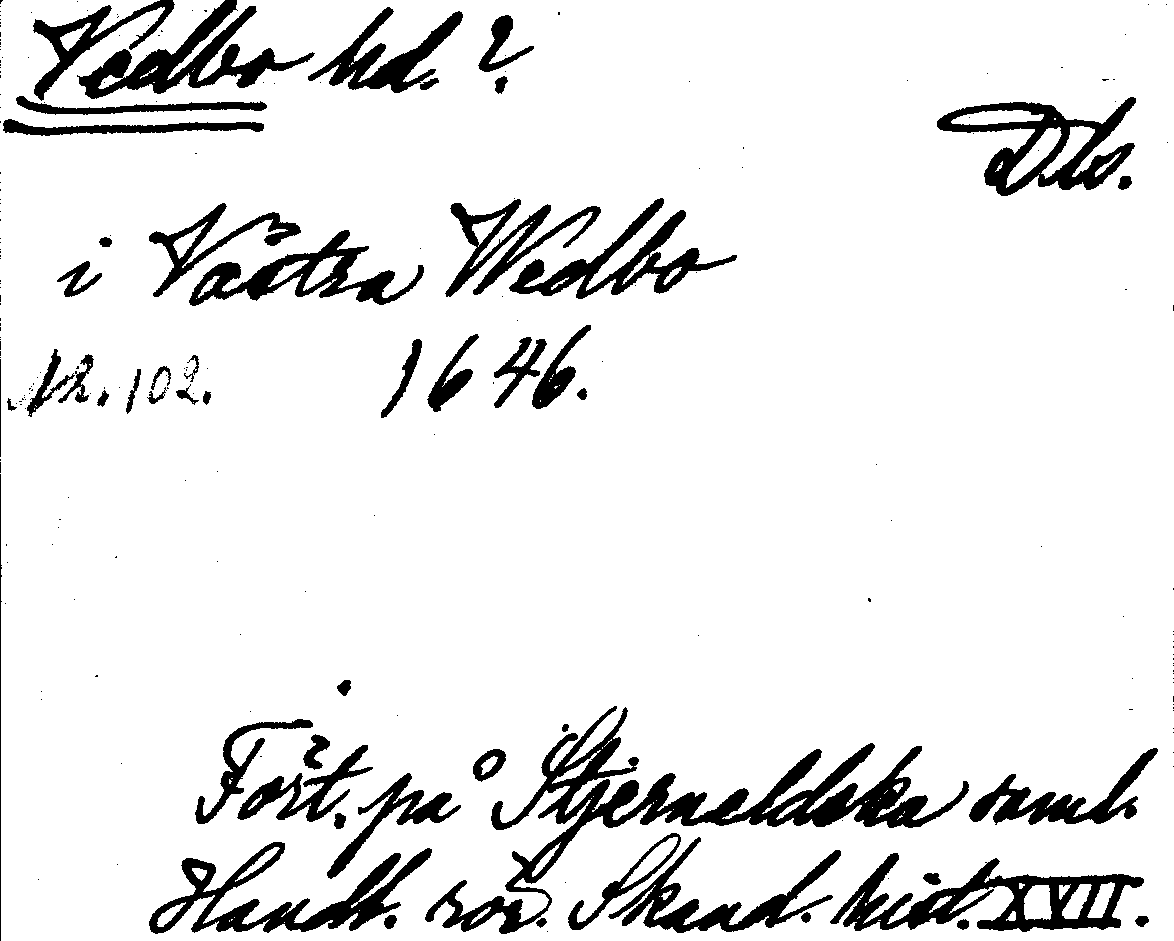 Vedbo hd. ?
Dls.
i Västra Wedbo
Nr. 102. 1646.
Fört. på Stjerneldska saml.
Handl. rör. Skand. hist. XVII.